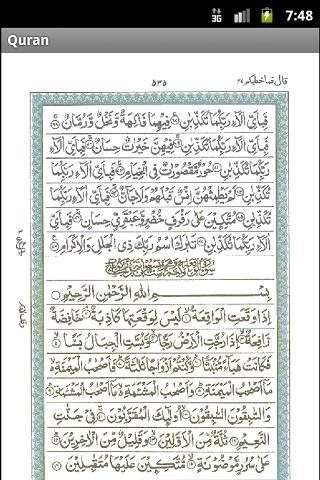 3G 7:48
Quran
قال فما خطبكم ٢٧
٥٣٥
فَبِاَيِّ اٰلَآءِ رَبِّكُمَا تُكَذِّبٰنِ فِيْهِمَا فَاكِهَةٌ وَّنَخْلٌ وَّرُمَّانٌ
فَبِاَيِّ اٰلَآءِ رَبِّكُمَا تُكَذِّبٰنِ فِيْهِنَّ خَيْرٰتٌ حِسَانٌ فَبِاَيِّ اٰلَآءِ
رَبِّكُمَا تُكَذِّبٰنِ حُوْرٌ مَّقْصُوْرٰتٌ فِي الْخِيَامِ فَبِاَيِّ اٰلَآءِ رَبِّكُمَا
تُكَذِّبٰنِ لَمْ يَطْمِثْهُنَّ اِنْسٌ قَبْلَهُمْ وَلَا جَآنٌّ فَبِاَيِّ اٰلَآءِ رَبِّكُمَا
تُكَذِّبٰنِ مُتَّكِـِٕيْنَ عَلٰى رَفْرَفٍ خُضْرٍ وَّعَبْقَرِيٍّ حِسَانٍ فَبِاَيِّ
اٰلَآءِ رَبِّكُمَا تُكَذِّبٰنِ تَبٰرَكَ اسْمُ رَبِّكَ ذِي الْجَلٰلِ وَالْاِكْرَامِ
بِسْمِ اللّٰهِ الرَّحْمٰنِ الرَّحِيْمِ
اِذَا وَقَعَتِ الْوَاقِعَةُ لَيْسَ لِوَقْعَتِهَا كَاذِبَةٌ خَافِضَةٌ
رَّافِعَةٌ اِذَا رُجَّتِ الْاَرْضُ رَجًّا وَّبُسَّتِ الْجِبَالُ بَسًّا
فَكَانَتْ هَبَآءً مُّنْۢبَثًّا وَّكُنْتُمْ اَزْوَاجًا ثَلٰثَةً فَاَصْحٰبُ الْمَيْمَنَةِ
مَآ اَصْحٰبُ الْمَيْمَنَةِ وَاَصْحٰبُ الْمَشْـَٔمَةِ مَآ اَصْحٰبُ الْمَشْـَٔمَةِ
وَالسّٰبِقُوْنَ السّٰبِقُوْنَ اُولٰٓئِكَ الْمُقَرَّبُوْنَ فِيْ جَنّٰتِ
النَّعِيْمِ ثُلَّةٌ مِّنَ الْاَوَّلِيْنَ وَقَلِيْلٌ مِّنَ الْاٰخِرِيْنَ
عَلٰى سُرُرٍ مَّوْضُوْنَةٍ مُّتَّكِـِٕيْنَ عَلَيْهَا مُتَقٰبِلِيْنَ